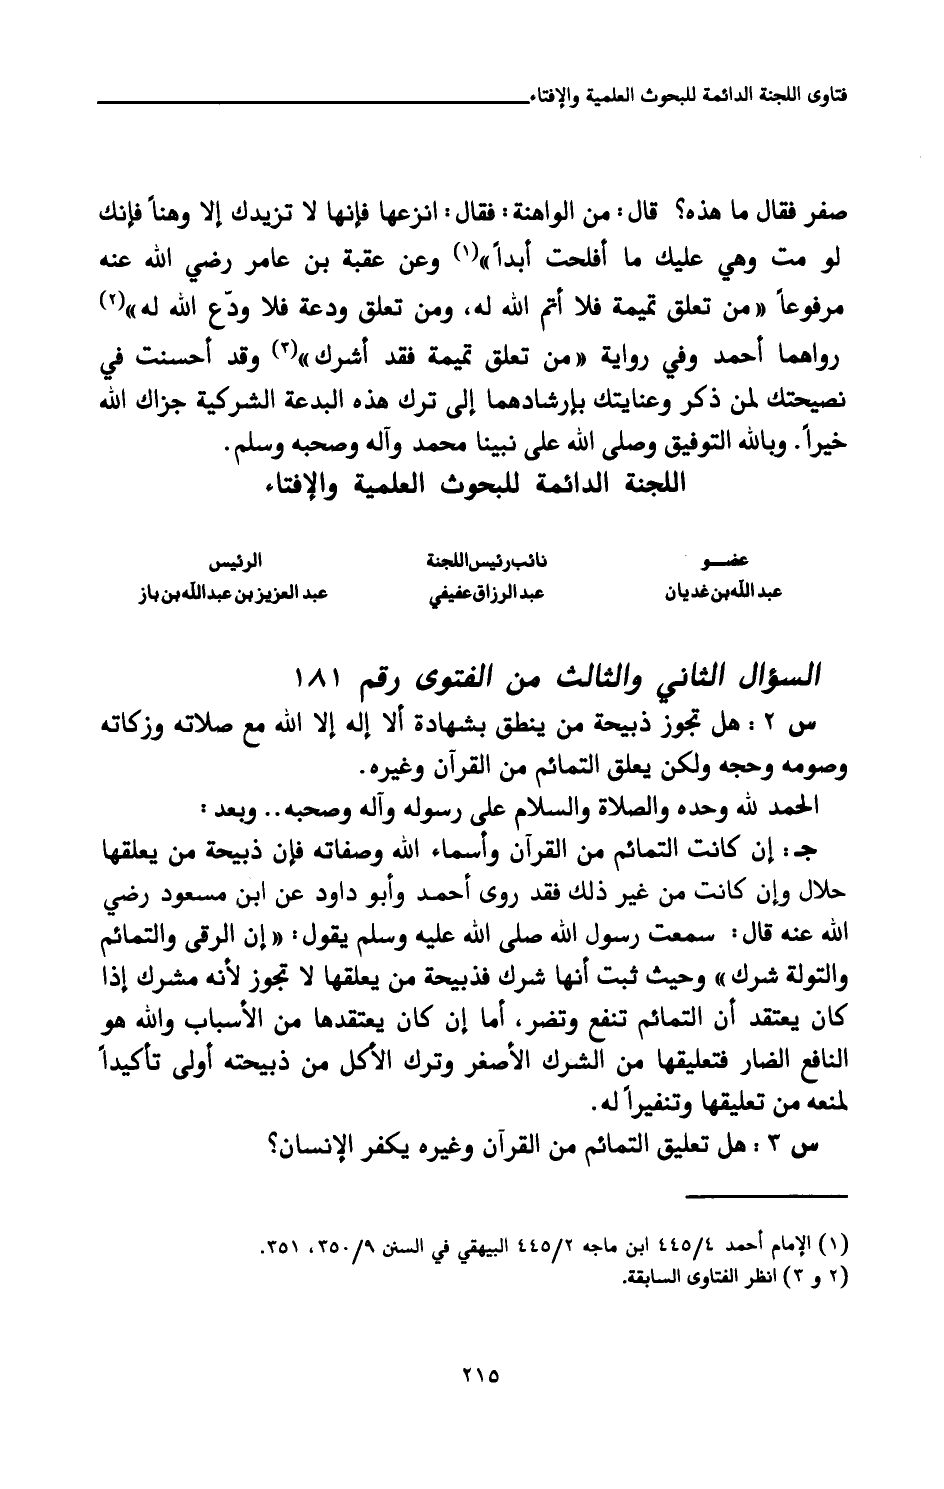 فتاوى اللجنة الدائمة للبحوث العلمية والإفتاء
صفر فقال ما هذه؟ قال: من الواهنة: فقال: انزعها فإنها لا تزيدك إلا وهناً فإنك
لو مت وهي عليك ما أفلحت أبداً»(١) وعن عقبة بن عامر رضي الله عنه
مرفوعاً «من تعلق تميمة فلا أتم الله له، ومن تعلق ودعة فلا ودّع الله له»(٢)
رواهما أحمد وفي رواية «من تعلق تميمة فقد أشرك»(٣) وقد أحسنت في
نصيحتك لمن ذكر وعنايتك بإرشادهما إلى ترك هذه البدعة الشركية جزاك الله
خيراً. وبالله التوفيق وصلى الله على نبينا محمد وآله وصحبه وسلم.
اللجنة الدائمة للبحوث العلمية والإفتاء
عضــو نائب رئيس اللجنة الرئيس
عبد الله بن غديان عبد الرزاق عفيفي عبد العزيز بن عبد الله بن باز
السؤال الثاني والثالث من الفتوى رقم ١٨١
س ٢ : هل تجوز ذبيحة من ينطق بشهادة ألا إله إلا الله مع صلاته وزكاته
وصومه وحجه ولكن يعلق التمائم من القرآن وغيره.
الحمد لله وحده والصلاة والسلام على رسوله وآله وصحبه.. وبعد :
جـ: إن كانت التمائم من القرآن وأسماء الله وصفاته فإن ذبيحة من يعلقها
حلال وإن كانت من غير ذلك فقد روى أحمد وأبو داود عن ابن مسعود رضي
الله عنه قال: سمعت رسول الله صلى الله عليه وسلم يقول: «إن الرقى والتمائم
والتولة شرك» وحيث ثبت أنها شرك فذبيحة من يعلقها لا تجوز لأنه مشرك إذا
كان يعتقد أن التمائم تنفع وتضر، أما إن كان يعتقدها من الأسباب والله هو
النافع الضار فتعليقها من الشرك الأصغر وترك الأكل من ذبيحته أولى تأكيداً
لمنعه من تعليقها وتنفيراً له.
س ٣ : هل تعليق التمائم من القرآن وغيره يكفر الإنسان؟
(١) الإمام أحمد ٤/٤٤٥ ابن ماجه ٢/٤٤٥ البيهقي في السنن ٩/٣٥٠، ٣٥١.
(٢ و ٣) انظر الفتاوى السابقة.
٢١٥